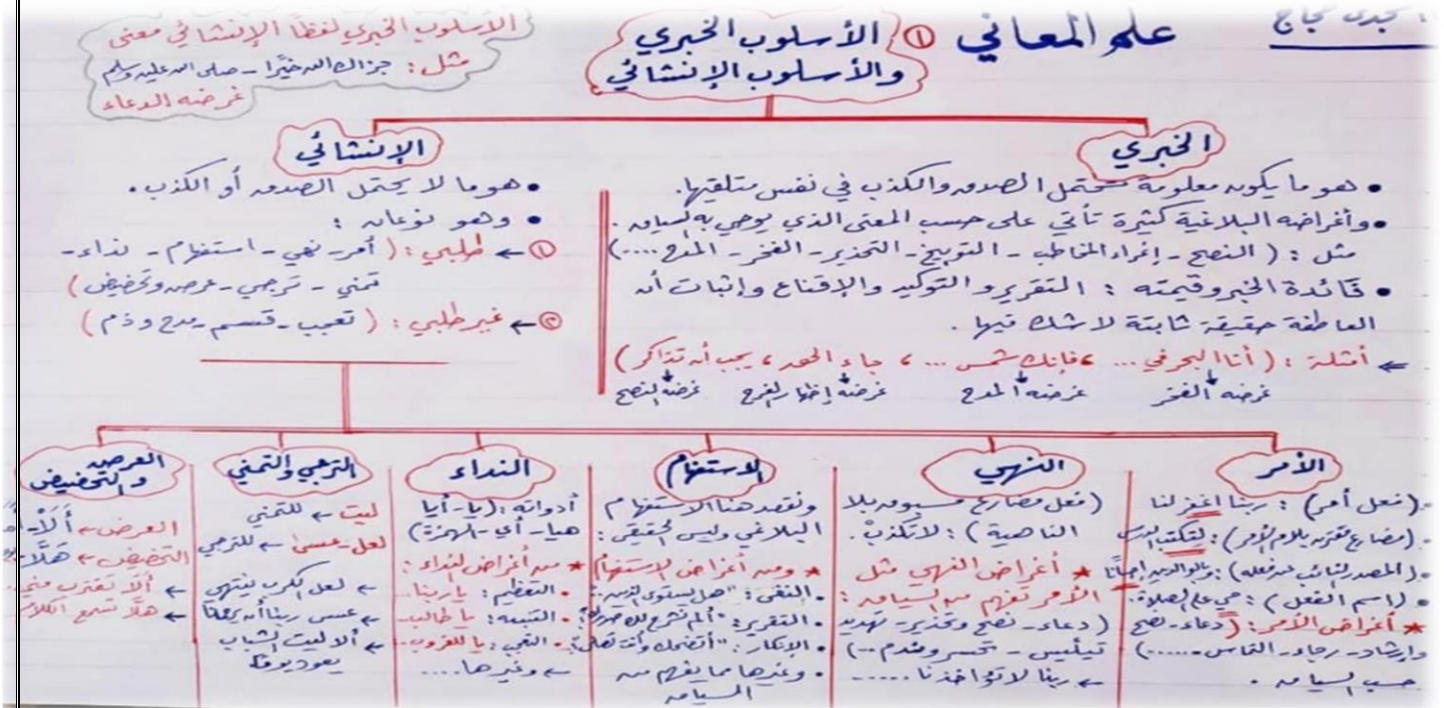 علم المعاني
① الأسلوب الخبري
والأسلوب الإنشائي
الأسلوب الخبري لفظًا الإنشائي معنى
مثل: جزاك الله خيرًا - صلى الله عليه وسلم
غرضه الدعاء
الخبري
• هو ما يكون معلومة تحتمل الصدق والكذب في نفس متلقيها.
• وأغراضه البلاغية كثيرة تأتي على حسب المعنى الذي يوحي به السياق.
مثل: (النصح - إغراء المخاطب - التوبيخ - التحذير - الفخر - المدح ....)
• فائدة الخبر وقيمته: التقرير والتوكيد والإقناع وإثبات أن
العاطفة حقيقة ثابتة لا شك فيها.
← أمثلة: (أنا البحر في ... ، فإنك شمس ... ، جاء الحق ، يجب أن تذاكر)
غرضه الفخر غرضه المدح غرضه إظهار الفرح غرضه النصح
الإنشائي
• هو ما لا يحتمل الصدق أو الكذب.
• وهو نوعان:
① ← طلبي: (أمر - نهي - استفهام - نداء -
تمني - ترجي - عرض وتحضيض)
② ← غير طلبي: (تعجب - قسم - مدح وذم)
الأمر
• (فعل أمر): ربنا اغفر لنا
• (مضارع مقترن بلام الأمر): لتكتب الدرس
• (المصدر النائب عن فعله): وبالوالدين إحسانًا
• (اسم الفعل): حي على الصلاة.
★ أغراض الأمر: (دعاء - نصح
وإرشاد - رجاء - التماس ......)
حسب السياق.
النهي
(فعل مضارع مسبوق بلا
الناهية): لا تكذبْ.
★ أغراض النهي مثل
الأمر تفهم من السياق:
(دعاء - نصح وتحذير - تهديد
تيئيس - تحسر وتندم ...)
← ربنا لا تؤاخذنا ......
الاستفهام
ونقصد هنا الاستفهام
البلاغي وليس الحقيقي:
★ ومن أغراض الاستفهام
• النفي: "هل يستوي الذين"
• التقرير: "ألم نشرح لك صدرك"
• الإنكار: "أتضحك وأنت تصلي"
• وغيرها مما يفهم من
السياق
النداء
أدواته: (يا - أيا
هيا - أي - الهمزة)
★ من أغراض النداء:
• التعظيم: يا ربنا..
• التنبيه: يا طالب..
• التعجب: يا للغروب..
← وغيرها....
الترجي والتمني
ليت ← للتمني
لعل - عسى ← للترجي
← لعل الكرب ينتهي
← عسى ربنا أن يرحمنا
← ألا ليت الشباب
يعود يومًا
العرض
والتحضيض
العرض ← أَلَا -
التحضيض ← هَلَّا -
← ألا تقترب مني
← هلا تسمع الكلام